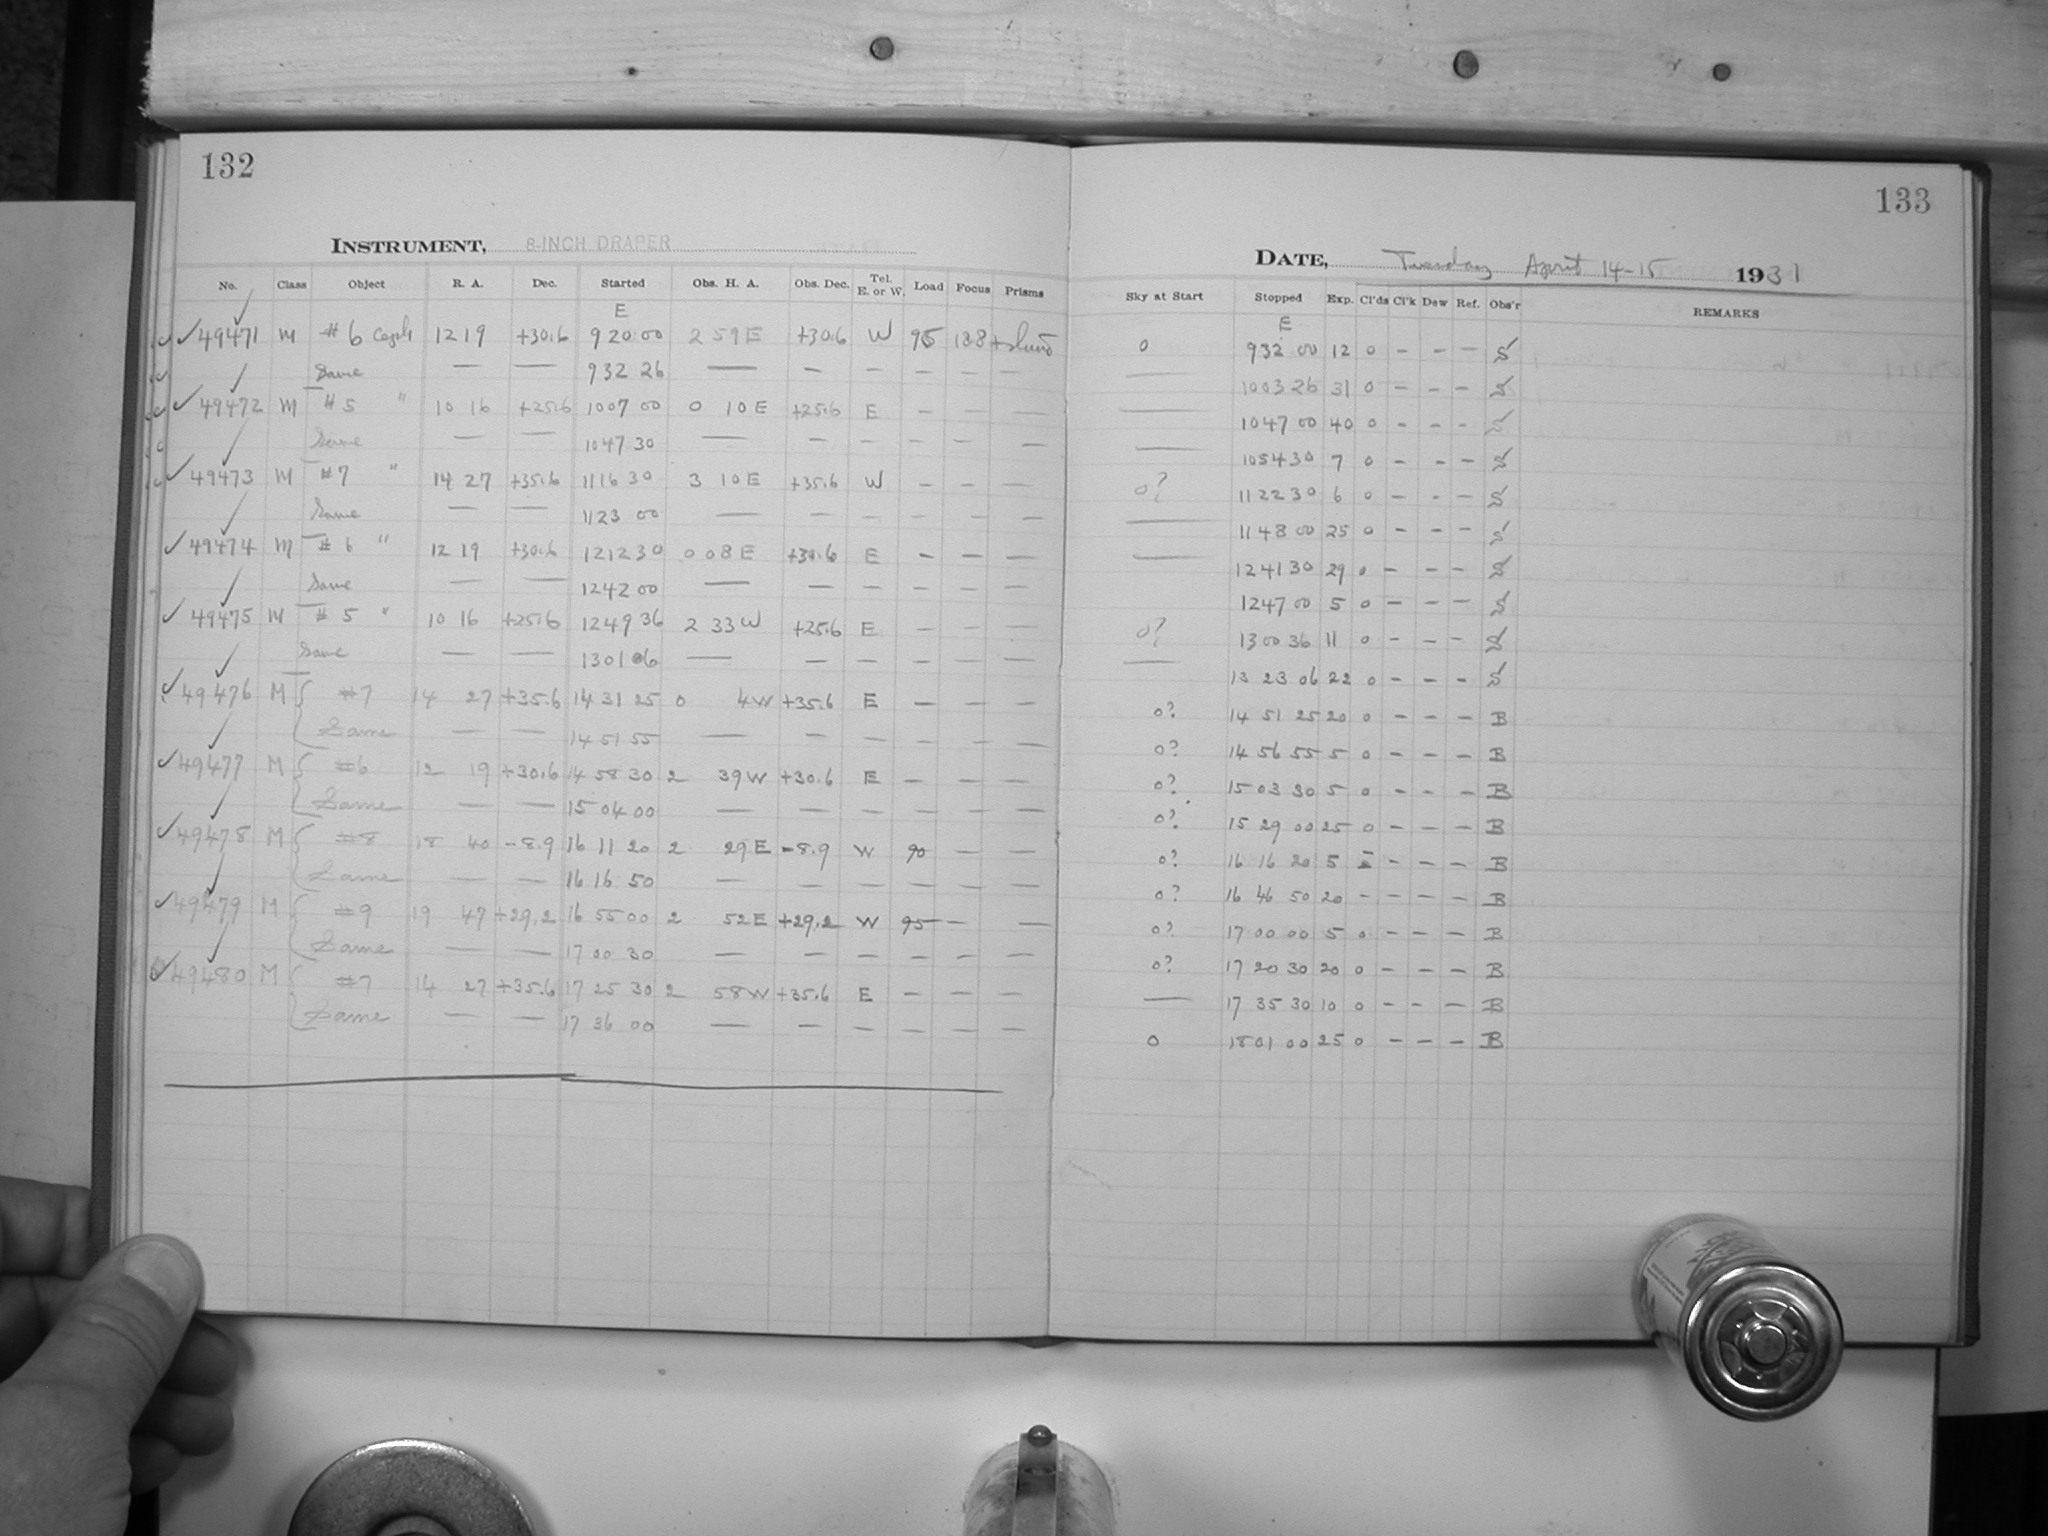 132
INSTRUMENT, 8-INCH DRAPER
No. Class Object R. A. Dec. Started Obs. H. A. Obs. Dec. Tel. E. or W. Load Focus Prisms
E
49471 M #6 Ceph 12 19 +30.6 9 20 00 2 59 E +30.6 W 95 188
Same — — 9 32 26 — — — — — —
49472 M #5 " 10 16 +25.6 10 07 00 0 10 E +25.6 E — — —
Same — — 10 47 30 — — — — — —
49473 M #7 " 14 27 +35.6 11 16 30 3 10 E +35.6 W — — —
Same — — 11 23 00 — — — — — —
49474 M #6 " 12 19 +30.6 12 12 30 0 08 E +30.6 E — — —
Same — — 12 42 00 — — — — — —
49475 M #5 " 10 16 +25.6 12 49 36 2 33 W +25.6 E — — —
Same — — 13 01 06 — — — — — —
49476 M #7 14 27 +35.6 14 31 25 0 4 W +35.6 E — — —
Same — — 14 51 55 — — — — — —
49477 M #6 12 19 +30.6 14 58 30 2 39 W +30.6 E — — —
Same — — 15 04 00 — — — — — —
49478 M #8 18 40 -8.9 16 11 20 2 29 E -8.9 W 90 — —
Same — — 16 16 50 — — — — — —
49479 M #9 19 47 +29.2 16 55 00 2 52 E +29.2 W 95 — —
Same — — 17 00 30 — — — — — —
49480 M #7 14 27 +35.6 17 25 30 2 58 W +35.6 E — — —
Same — — 17 36 00 — — — — — —
133
DATE, Tuesday April 14-15 1931
Sky at Start Stopped Exp. Cl'ds Cl'k Dew Ref. Obs'r REMARKS
E
0 9 32 00 12 0 — — — S
— 10 03 26 31 0 — — — S
— 10 47 00 40 0 — — — S
— 10 54 30 7 0 — — — S
0? 11 22 30 6 0 — — — S
— 11 48 00 25 0 — — — S
— 12 41 30 29 0 — — — S
12 47 00 5 0 — — — S
0? 13 00 36 11 0 — — — S
— 13 23 06 22 0 — — — S
0? 14 51 25 20 0 — — — B
0? 14 56 55 5 0 — — — B
0? 15 03 30 5 0 — — — B
0? 15 29 00 25 0 — — — B
0? 16 16 20 5 — — — B
0? 16 46 50 20 — — — — B
0? 17 00 00 5 0 — — — B
0? 17 20 30 20 0 — — — B
— 17 35 30 10 0 — — — B
0 18 01 00 25 0 — — — B